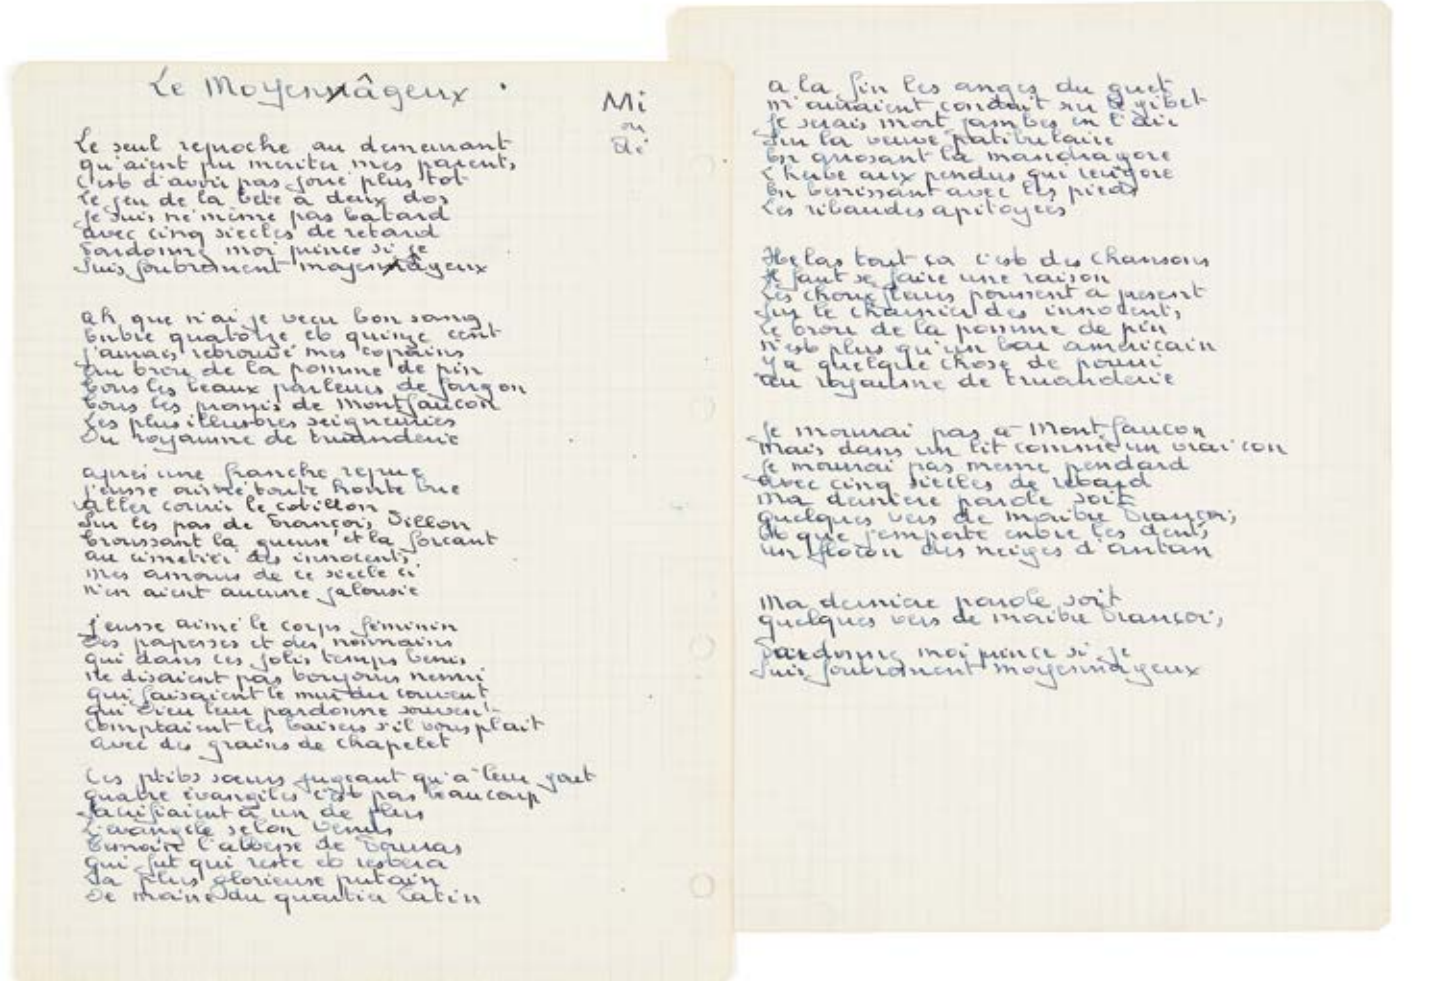 Le Moyenâgeux
Mi
ou
Ré
Le seul reproche au demeurant
qu'aient pu meriter mes parents
c'est d'avoir pas joué plus tot
Le jeu de la bete a deux dos
je suis né meme pas batard
avec cinq siecles de retard
Pardonne moi prince si je
Suis foutrement moyenageux
ah que n'ai je vecu bon sang
Entre quatorze et quinze cent
j'aurais retrouvé mes copains
au trou de la pomme de pin
tous les beaux parleurs de jargon
tous les promis de Montfaucon
Les plus illustres seigneuries
Du royaume de truanderie
apres une franche repue
j'eusse aimé toute honte bue
aller courir le cotillon
Sur les pas de François Villon
troussant la gueuse et la forçant
au cimetiere des innocents
mes amours de ce siecle ci
n'en aient aucune jalousie
j'eusse aimé le corps féminin
Des papesses et des nonnains
qui dans ces jolis temps benis
ne disaient pas toujours nenni
qui faisaient le mur du couvent
qui Dieu leur pardonne souvent
comptaient les baisers s'il vous plait
avec des grains de chapelet
Ces ptites soeurs jugeant qu'a leur gout
quatre évangiles c'est pas beaucoup
Sacrifiaient a un de plus
L'evangile selon Venus
temoin l'abbesse de Pourras
qui fut qui reste et restera
La plus glorieuse putain
De moine du quartier Latin
a la fin les anges du guet
m'auraient conduit sur le gibet
je serais mort jambes en l'air
Sur la veuve patibulaire
En arrosant la mandragore
L'herbe aux pendus qui revigore
En benissant avec les pieds
Les ribaudes apitoyees
Helas tout ca c'est des chansons
Il faut se faire une raison
Les choux fleurs poussent a present
Sur le charnier des innocents
Le trou de la pomme de pin
n'est plus qu'un bar americain
Y a quelque chose de pourri
au royaume de truanderie
Je mourrai pas a Montfaucon
mais dans un lit comme un vrai con
Je mourrai pas meme pendard
avec cinq siecles de retard
ma derniere parole soit
quelques vers de maitre François
Et que j'emporte entre les dents
un flocon des neiges d'antan
Ma derniere parole soit
quelques vers de maitre François
Pardonne moi prince si je
Suis foutrement moyennageux